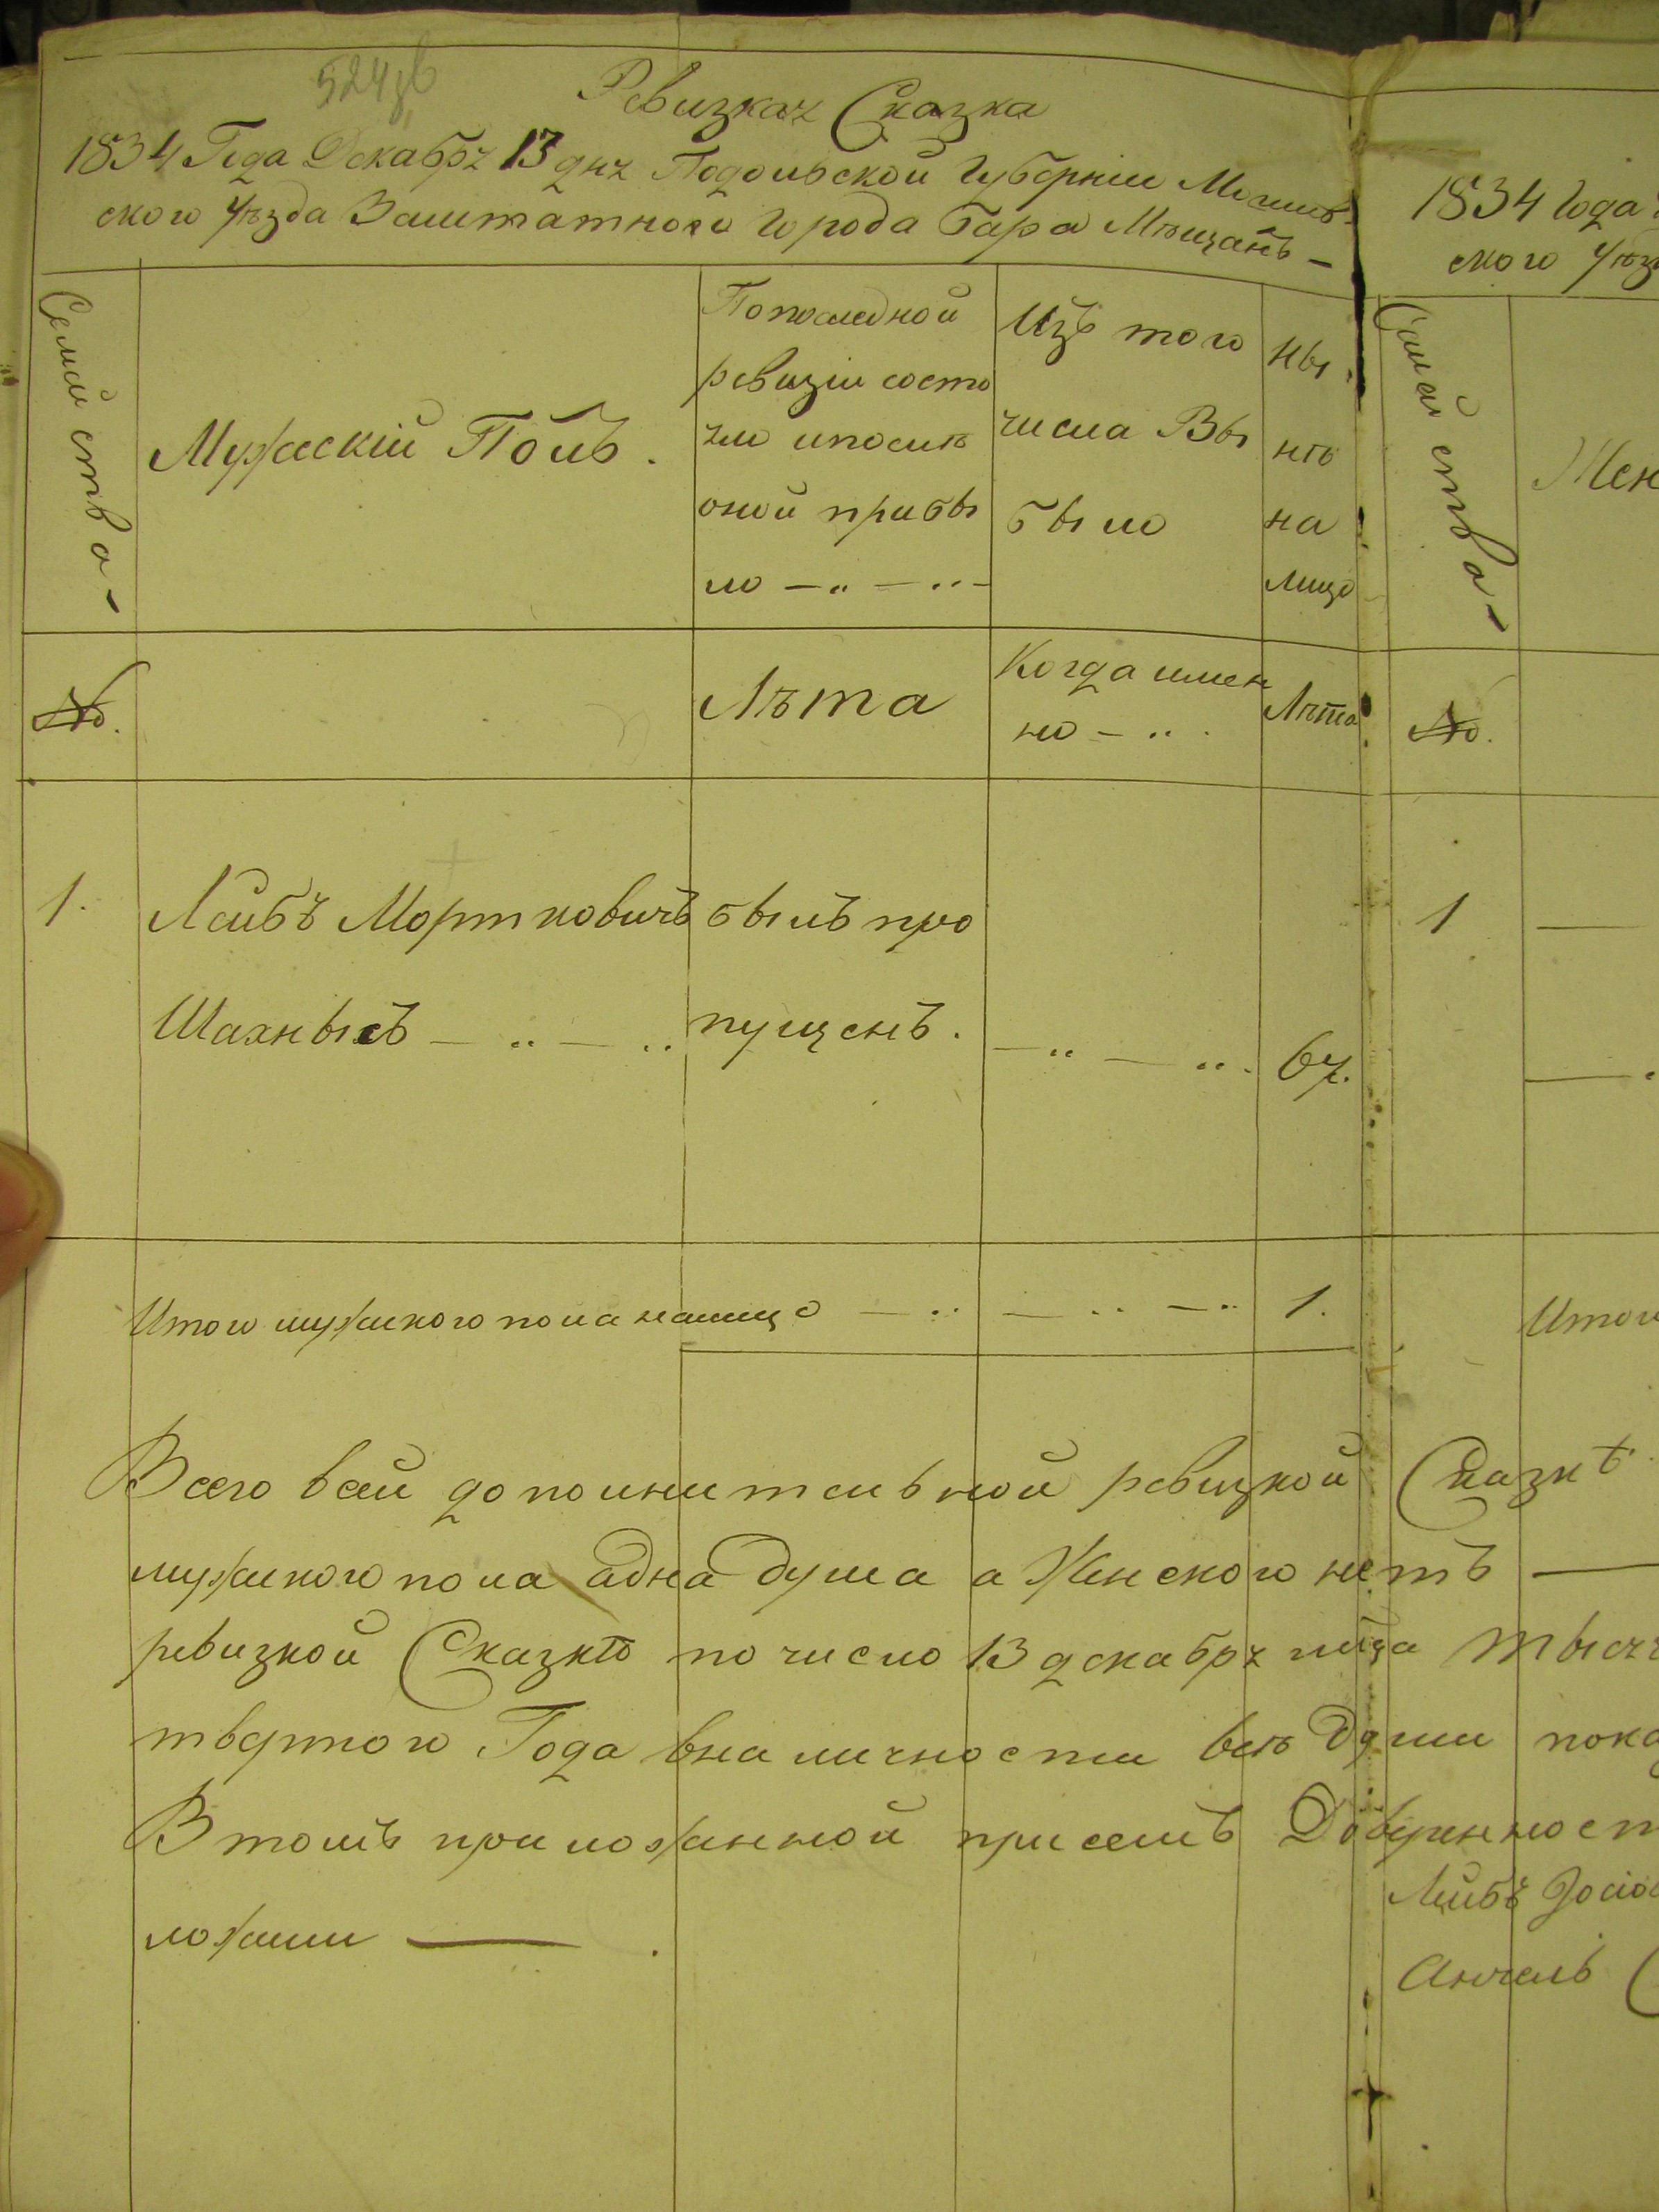 524зв
Ревизкая Сказка
1834 Года Декабря 13 дня Подольской Губерніи Могилев-
ского Уѣзда Заштатного Города Бара Мѣщанъ —
Семейства —
Мужескій Полъ.
По последной
ревизіи состо
яло и после
оной прибы
ло —
Изъ того
числа Вы
было
Ны
нѣ
на
лицо
№.
Лѣта
Когда имен
но —
Лѣта
1. Леибъ Мортковичъ былъ про
Шахнысъ — пущенъ. — 67.
Итого мужского пола налицо — 1.
Всего всей дополнительной ревизкой Сказкѣ
мужского пола адна душа а Женского нетъ —
ревизкой Сказкѣ по число 13 декабря
твертого Года вналичности все Души
Втомъ приложенной присемъ
ложили —
1834 Года
ского Уѣз
Семейства —
№.
Жен
1 —
Итого
Лейбъ